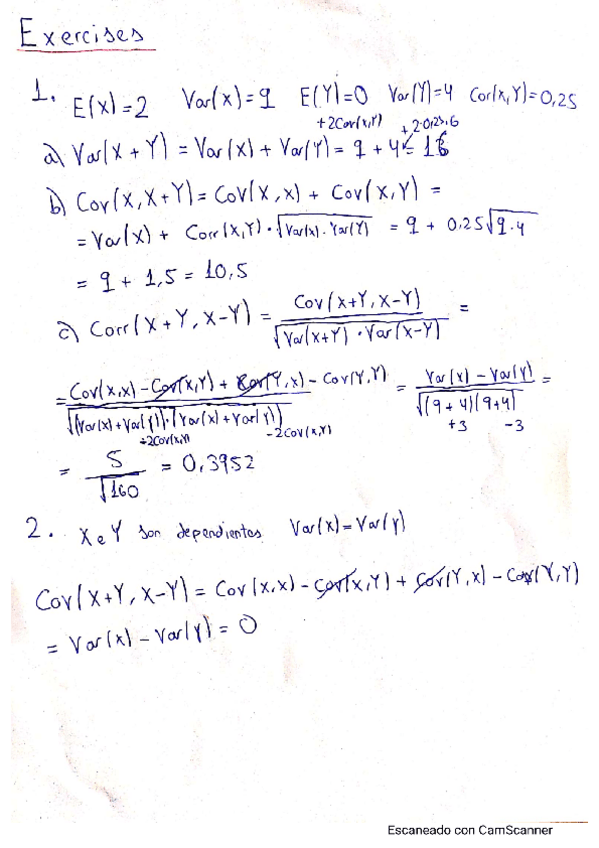 Exercises
1. E(X)=2 Var(X)=9 E(Y)=0 Var(Y)=4 Corr(X,Y)=0,25
+2Cov(X,Y) +2·0,25·6
a) Var(X+Y) = Var(X) + Var(Y) = 9 + 4 = 16
b) Cov(X, X+Y) = Cov(X,X) + Cov(X,Y) =
= Var(X) + Corr(X,Y)·√Var(X)·Var(Y) = 9 + 0,25√9·4
= 9 + 1,5 = 10,5
c) Corr(X+Y, X-Y) = Cov(X+Y, X-Y) / √Var(X+Y)·Var(X-Y) =
= Cov(X,X) - Cov(X,Y) + Cov(Y,X) - Cov(Y,Y) / √(Var(X)+Var(Y))·(Var(X)+Var(Y)) = Var(X) - Var(Y) / √(9+4)(9+4) =
+2Cov(X,Y) -2Cov(X,Y) +3 -3
= 5 / √160 = 0,3952
2. X e Y son dependientes Var(X)=Var(Y)
Cov(X+Y, X-Y) = Cov(X,X) - Cov(X,Y) + Cov(Y,X) - Cov(Y,Y)
= Var(X) - Var(Y) = 0
Escaneado con CamScanner